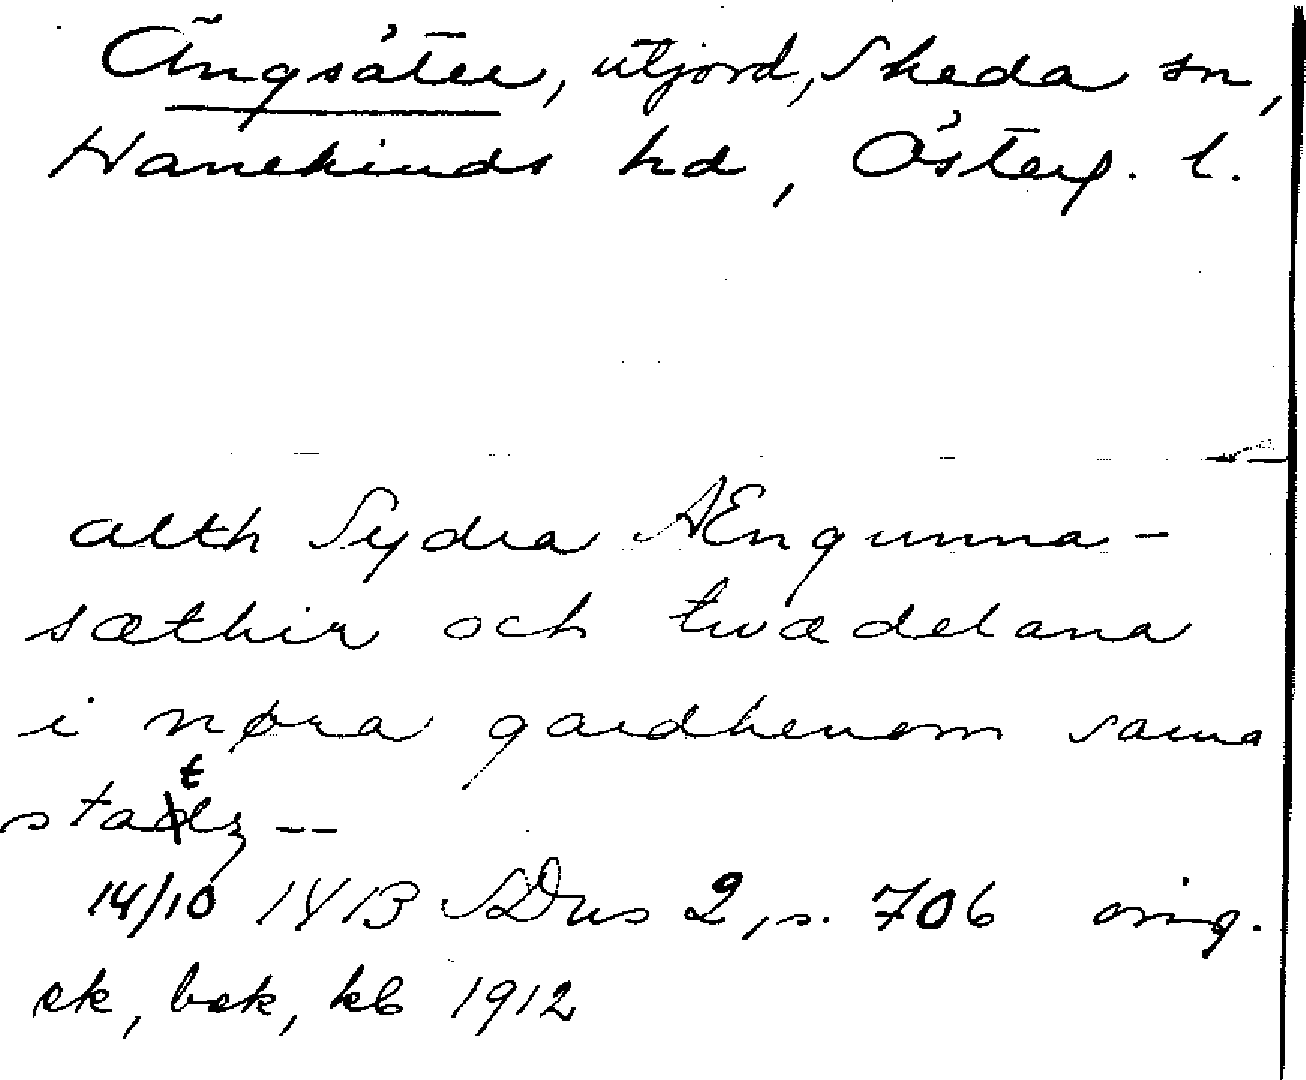 Ängsäter, utjord, Skeda sn,
Hanekinds hd, Österg. l.
alth Sydra Ængunna-
sæthir och twædelana
i nøra gardhenom sama
statz --
14/10 1413 SDns 2, s. 706 orig.
ek, bek, kb 1912